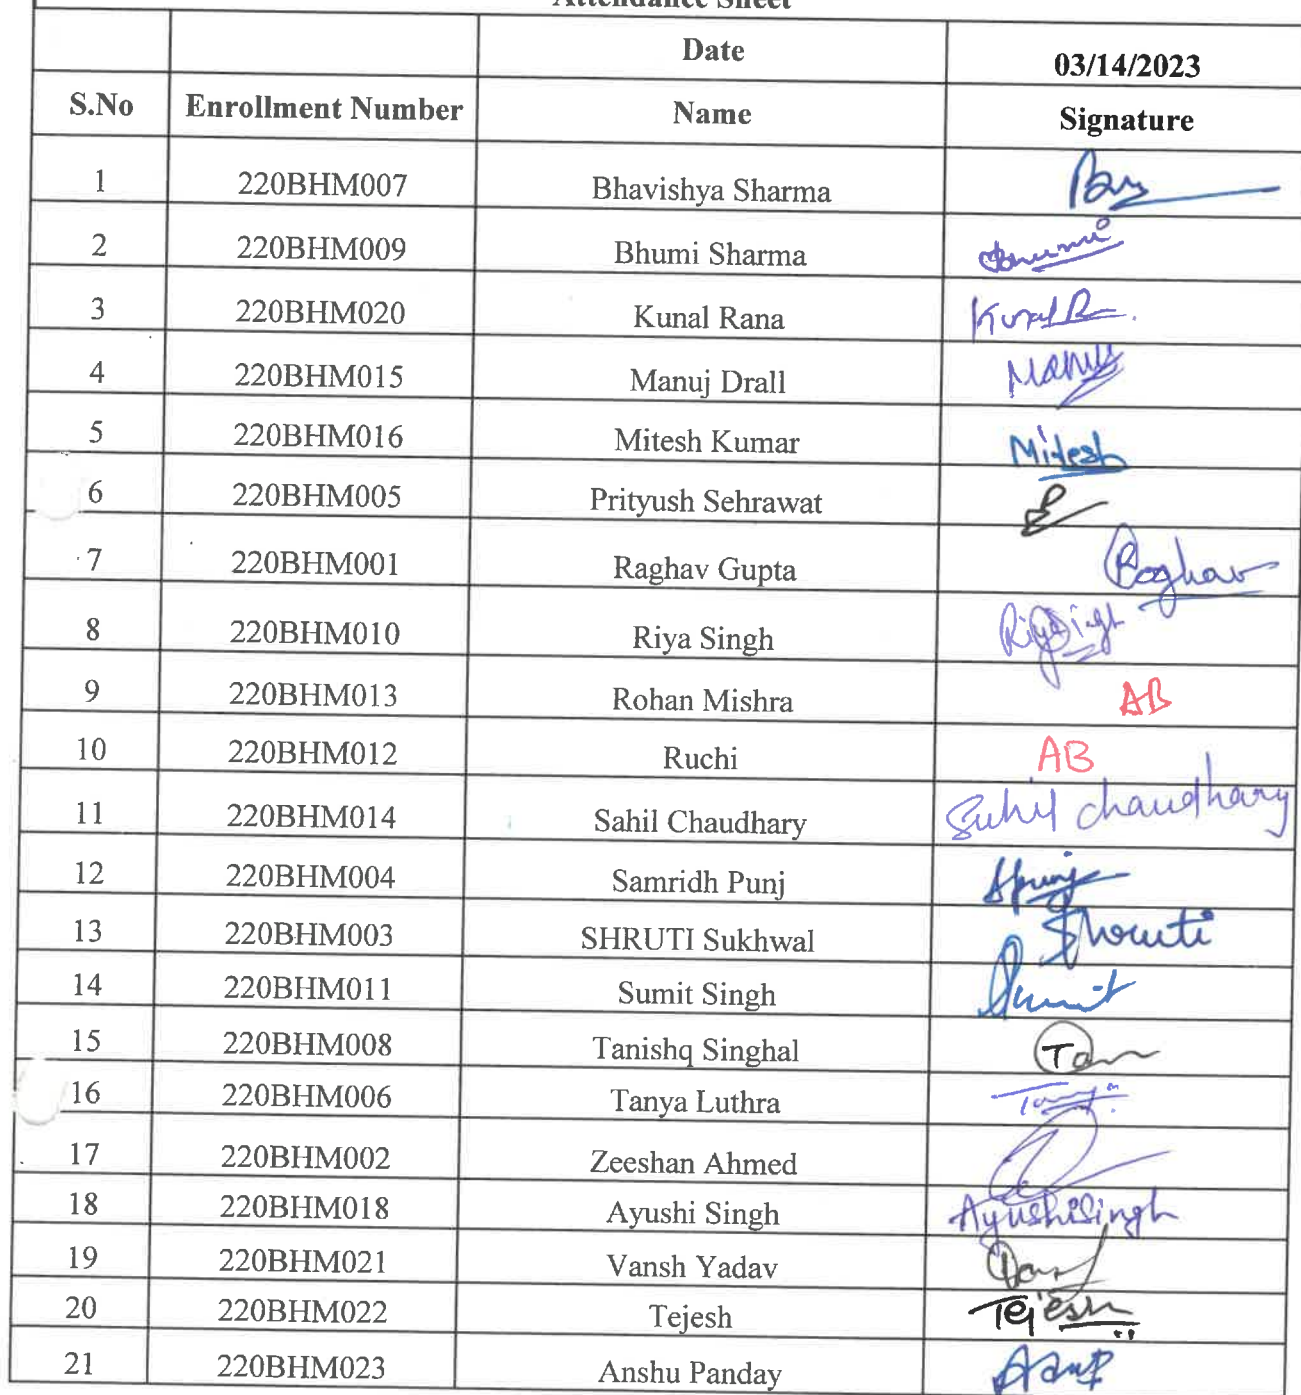 Attendance Sheet
Date 03/14/2023
S.No Enrollment Number Name Signature
1 220BHM007 Bhavishya Sharma
2 220BHM009 Bhumi Sharma Bhumi
3 220BHM020 Kunal Rana Kunal R
4 220BHM015 Manuj Drall Manuj
5 220BHM016 Mitesh Kumar Mitesh
6 220BHM005 Prityush Sehrawat
7 220BHM001 Raghav Gupta Raghav
8 220BHM010 Riya Singh Riya Singh
9 220BHM013 Rohan Mishra AB
10 220BHM012 Ruchi AB
11 220BHM014 Sahil Chaudhary Sahil chaudhary
12 220BHM004 Samridh Punj Spunj
13 220BHM003 SHRUTI Sukhwal Shruti
14 220BHM011 Sumit Singh Sumit
15 220BHM008 Tanishq Singhal Tan
16 220BHM006 Tanya Luthra
17 220BHM002 Zeeshan Ahmed
18 220BHM018 Ayushi Singh Ayushi Singh
19 220BHM021 Vansh Yadav
20 220BHM022 Tejesh Tejesh
21 220BHM023 Anshu Panday